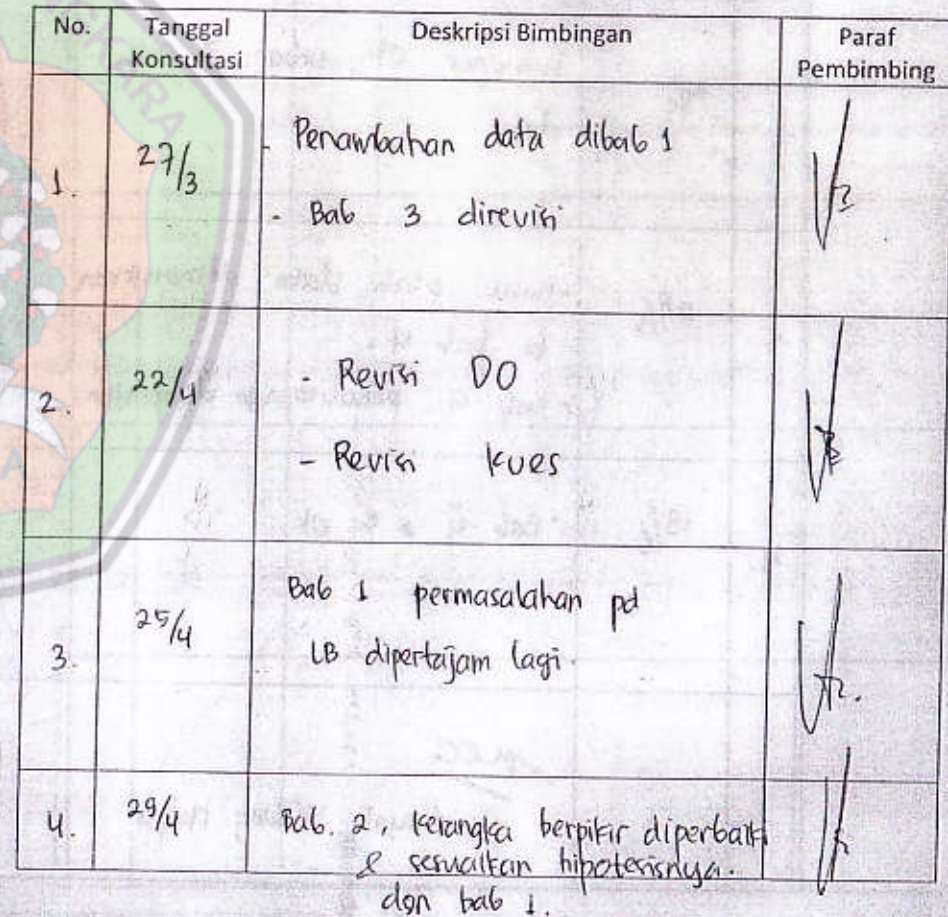 No. Tanggal Konsultasi Deskripsi Bimbingan Paraf Pembimbing
1. 27/3 - Penambahan data dibab 1
- Bab 3 direvisi
2. 22/4 - Revisi DO
- Revisi kues
3. 25/4 Bab 1 permasalahan pd
LB dipertajam lagi.
4. 29/4 Bab. 2, kerangka berpikir diperbaiki
& sesuaikan hipotesisnya.
dgn bab 1.